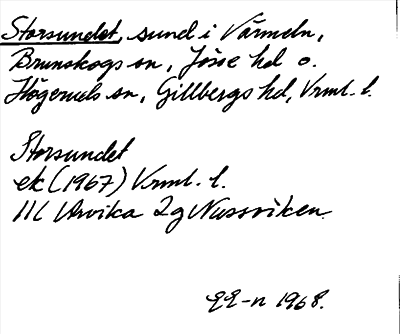 Storsundet, sund i Värmeln,
Brunskogs sn, Jösse hd o.
Högeruds sn, Gillbergs hd, Vrml. l.
Storsundet
ek (1967) Vrml. l.
11C Arvika 2g Nussviken.
1968.